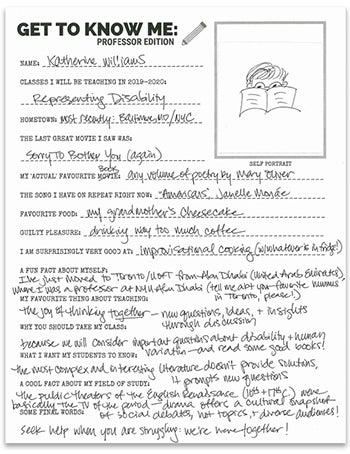 GET TO KNOW ME:
PROFESSOR EDITION
NAME: Katherine Williams
CLASSES I WILL BE TEACHING IN 2019-2020:
Representing Disability
HOMETOWN: most recently: Baltimore MD/NYC
THE LAST GREAT MOVIE I SAW WAS:
Sorry To Bother You (again)
SELF PORTRAIT
MY ACTUAL FAVOURITE MOVIE: Book any volume of poetry by Mary Oliver
THE SONG I HAVE ON REPEAT RIGHT NOW: "Americans", Janelle Monáe
FAVOURITE FOOD: my grandmother's cheesecake
GUILTY PLEASURE: drinking way too much coffee
I AM SURPRISINGLY VERY GOOD AT: improvisational cooking (w/whatever is in fridge!)
A FUN FACT ABOUT MYSELF:
I've just moved to Toronto/UofT from Abu Dhabi (United Arab Emirates)
where I was a professor at NYU Abu Dhabi (tell me abt your favorite hummus
in Toronto, please!)
MY FAVOURITE THING ABOUT TEACHING:
the joy of thinking together - new questions, ideas, + insights
through discussion
WHY YOU SHOULD TAKE MY CLASS:
because we will consider important questions about disability + human
variation - and read some good books!
WHAT I WANT MY STUDENTS TO KNOW:
the most complex and interesting literature doesn't provide solutions,
it prompts new questions
A COOL FACT ABOUT MY FIELD OF STUDY:
the public theaters of the English Renaissance (16th + 17th C) were
basically the TV of the period - drama offers a cultural snapshot
of social debates, hot topics, + diverse audiences!
SOME FINAL WORDS:
Seek help when you are struggling: we're here together!